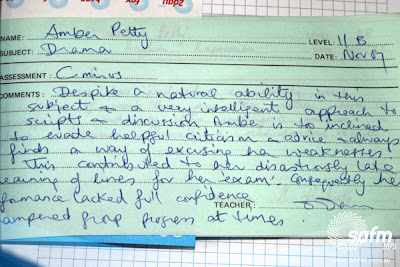 NAME: Amber Petty LEVEL: 11 B
SUBJECT: Drama DATE: Nov 87
ASSESSMENT: C minus
COMMENTS: Despite a natural ability in this
subject & a very intelligent approach to
scripts & discussion Amber is to inclined
to evade helpful criticism & advice & always
finds a way of excusing her weaknesses.
This contributed to her disastrously late
earning of lines for her 'exam'. Consequently he
formance lacked full confidence
TEACHER:
ampered group progress at times.
safm